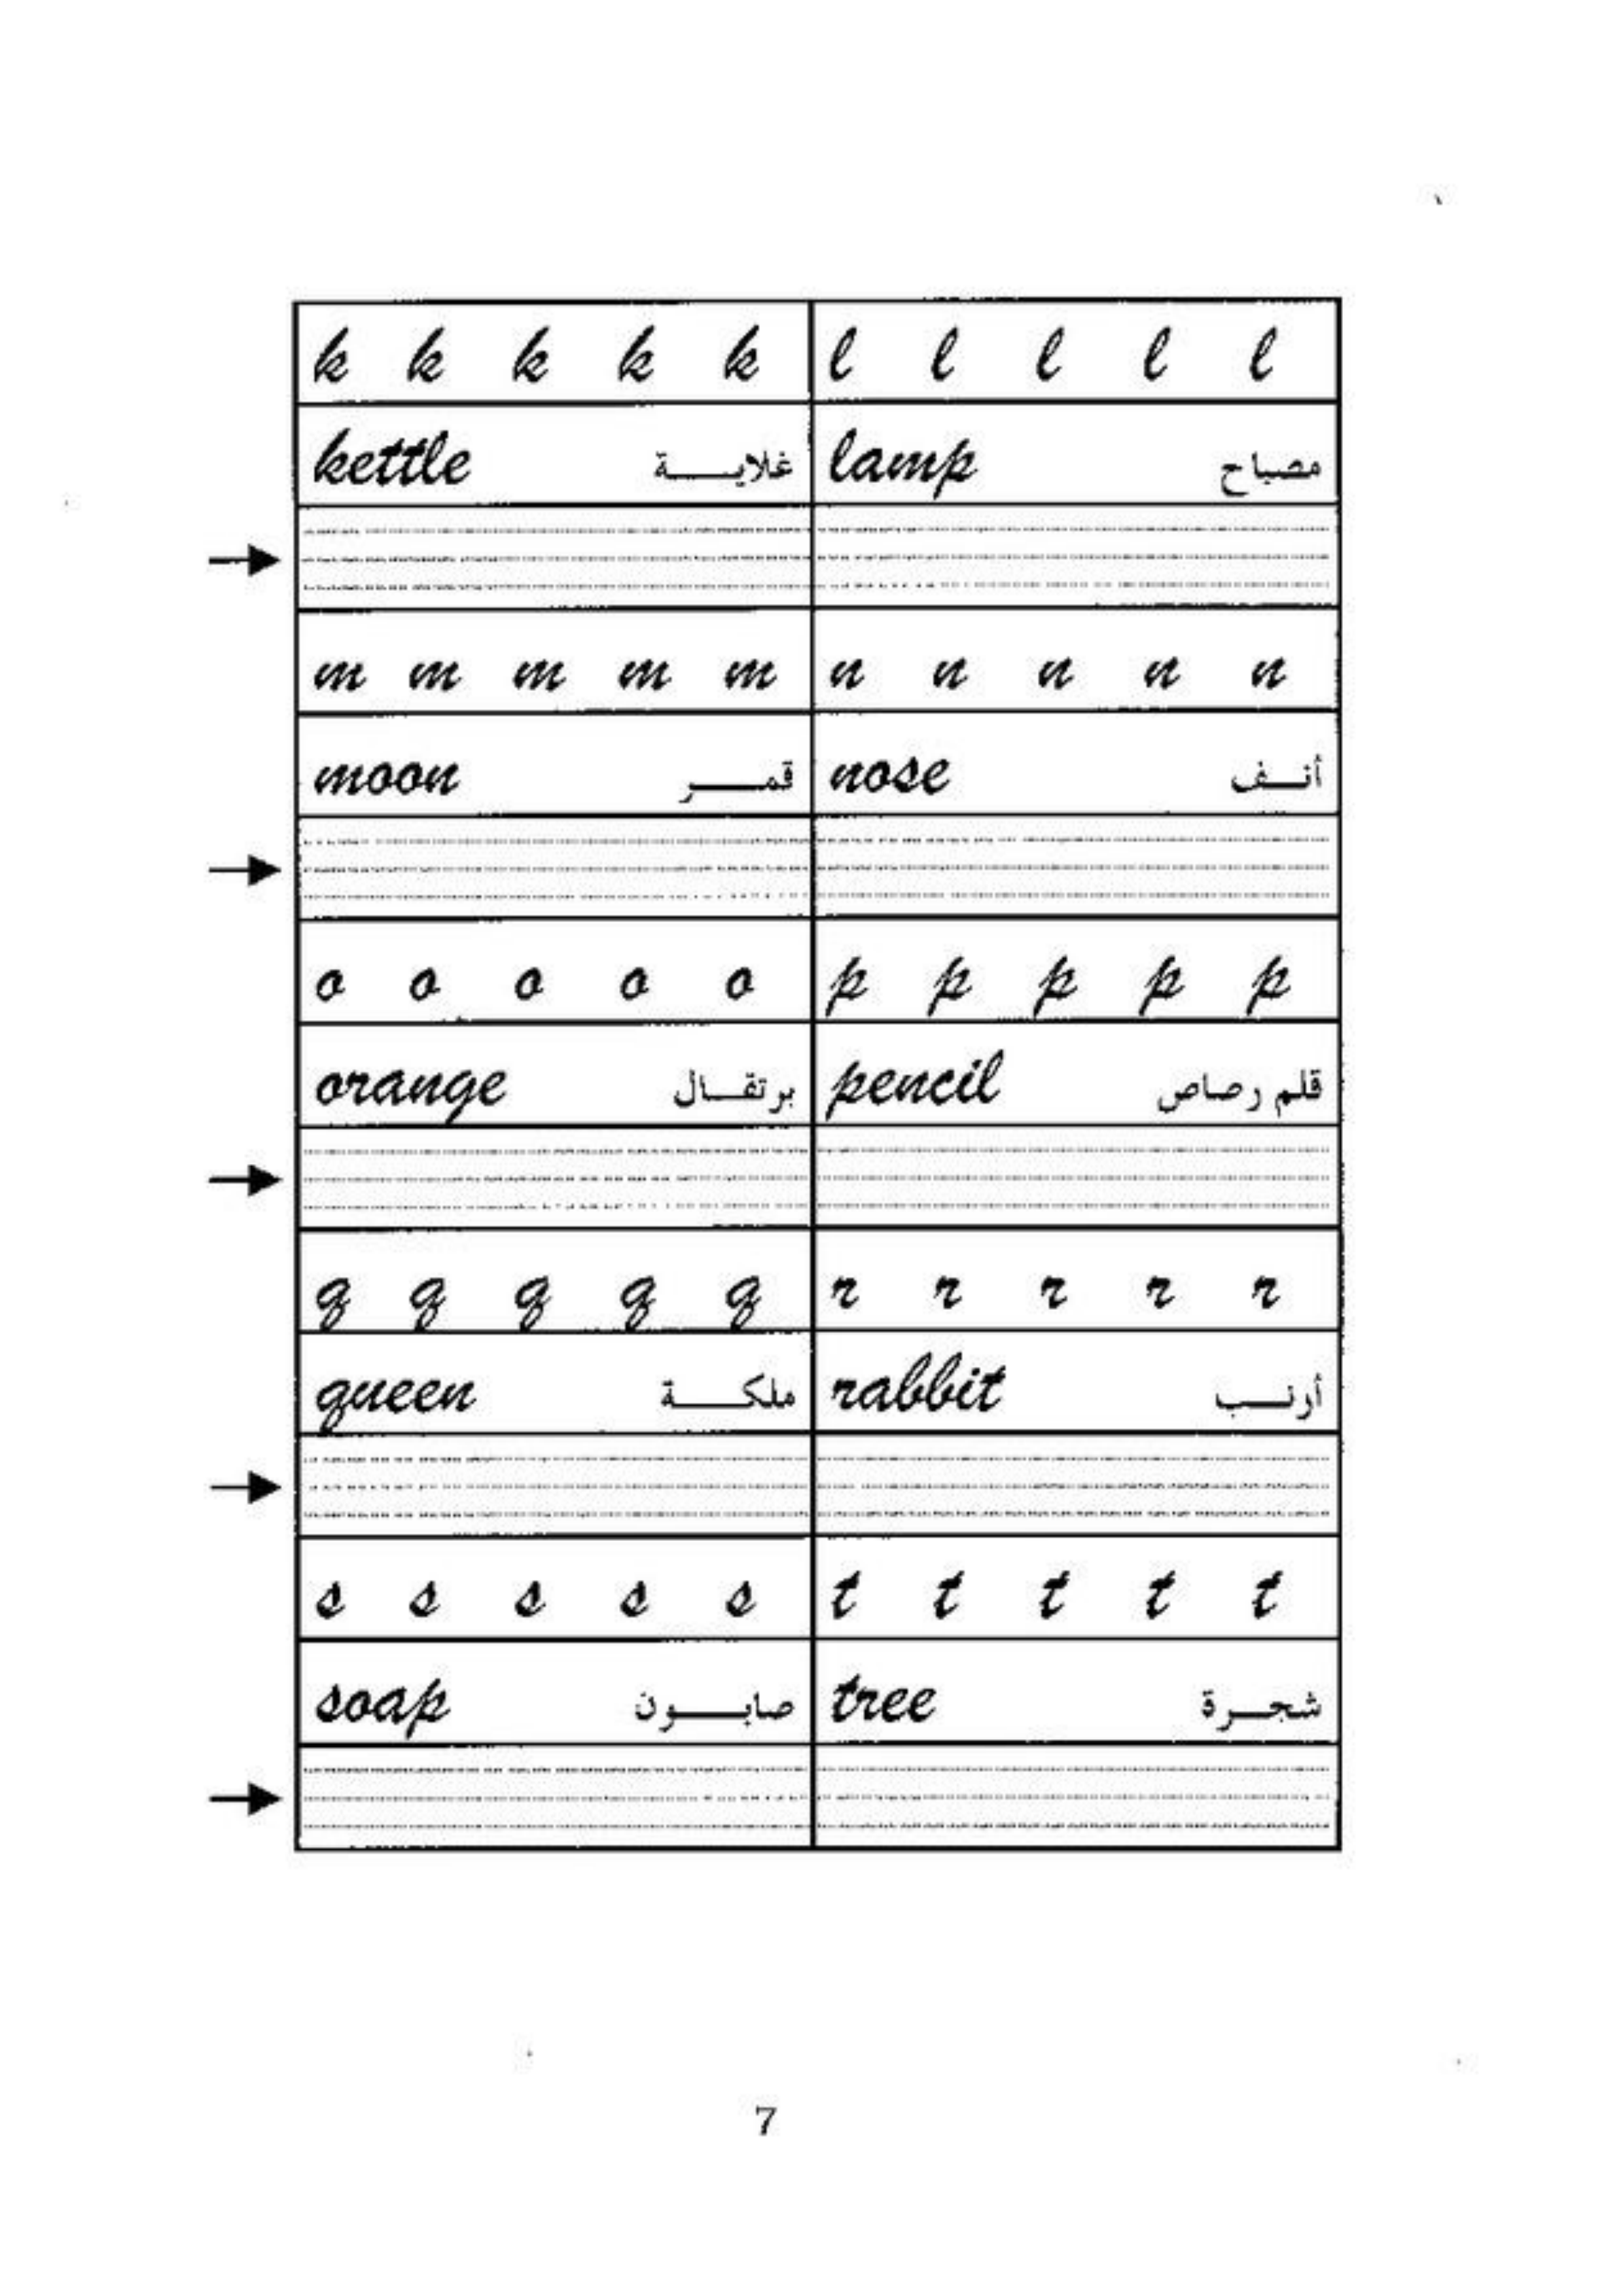 k k k k k l l l l l
kettle غلايـــة lamp مصباح
m m m m m n n n n n
moon قمـــر nose أنــف
o o o o o p p p p p
orange برتقــال pencil قلم رصاص
q q q q q r r r r r
queen ملكـــة rabbit أرنــب
s s s s s t t t t t
soap صابــــون tree شجــرة
7